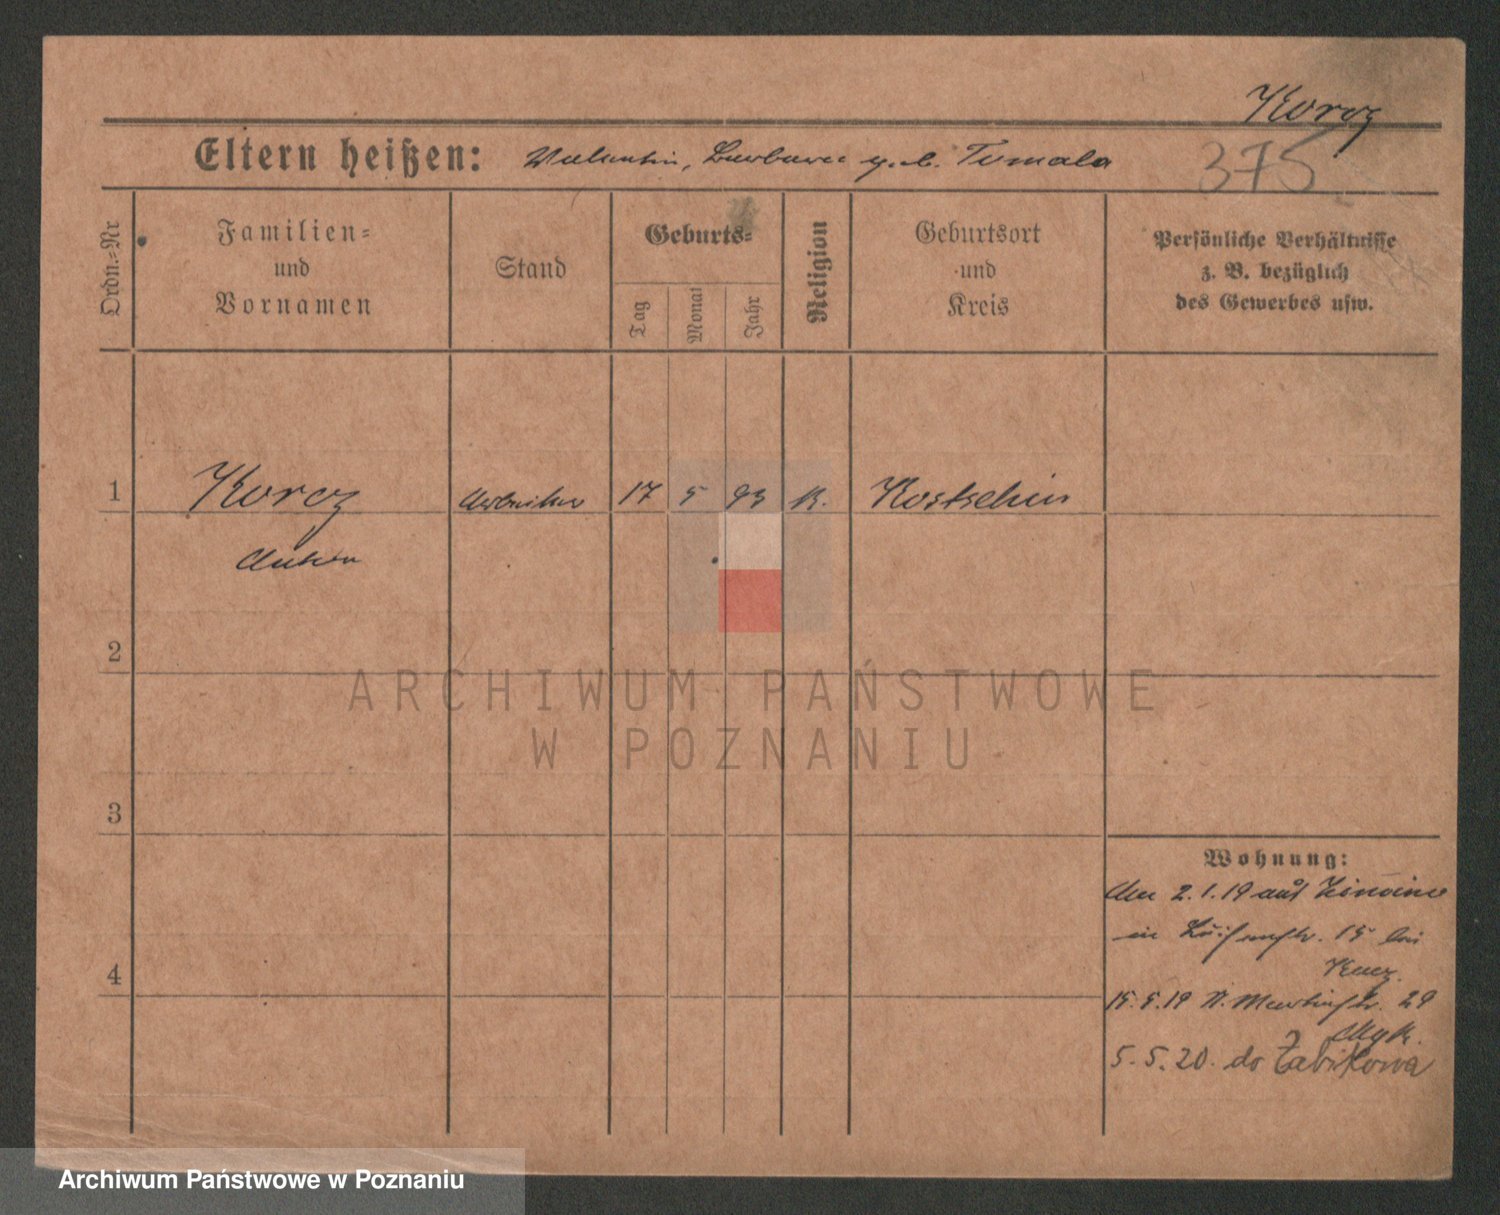 Korcz
Eltern heißen: Valentin, Barbara geb. Tomala
375
Ordn.=Nr
Familien=
und
Vornamen
Stand
Geburts=
Tag
Monat
Jahr
Religion
Geburtsort
und
Kreis
Persönliche Verhältnisse
z. B. bezüglich
des Gewerbes usw.
1 Korcz Arbeiter 17 5 93 K. Kostschin
Anton
2
ARCHIWUM PAŃSTWOWE
W POZNANIU
3
Wohnung:
Am 2.1.19 aus
in Luisenstr. 15 bei
4
15.5.19 St. Martinstr. 29
5.5.20. do Żabikowa
Archiwum Państwowe w Poznaniu